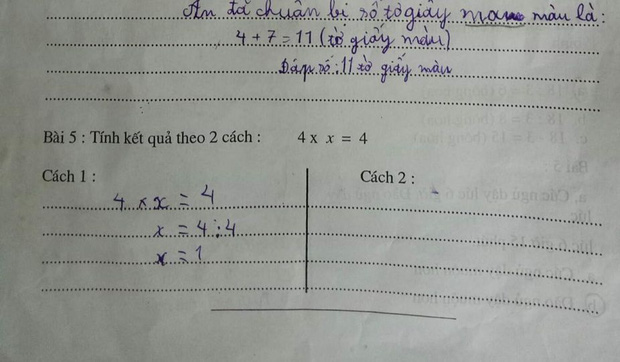 An đã chuẩn bị số tờ giấy màu là:
4 + 7 = 11 (tờ giấy màu)
Đáp số: 11 tờ giấy màu
Bài 5 : Tính kết quả theo 2 cách : 4 x x = 4
Cách 1 :
4 x x = 4
x = 4 : 4
x = 1
Cách 2 :